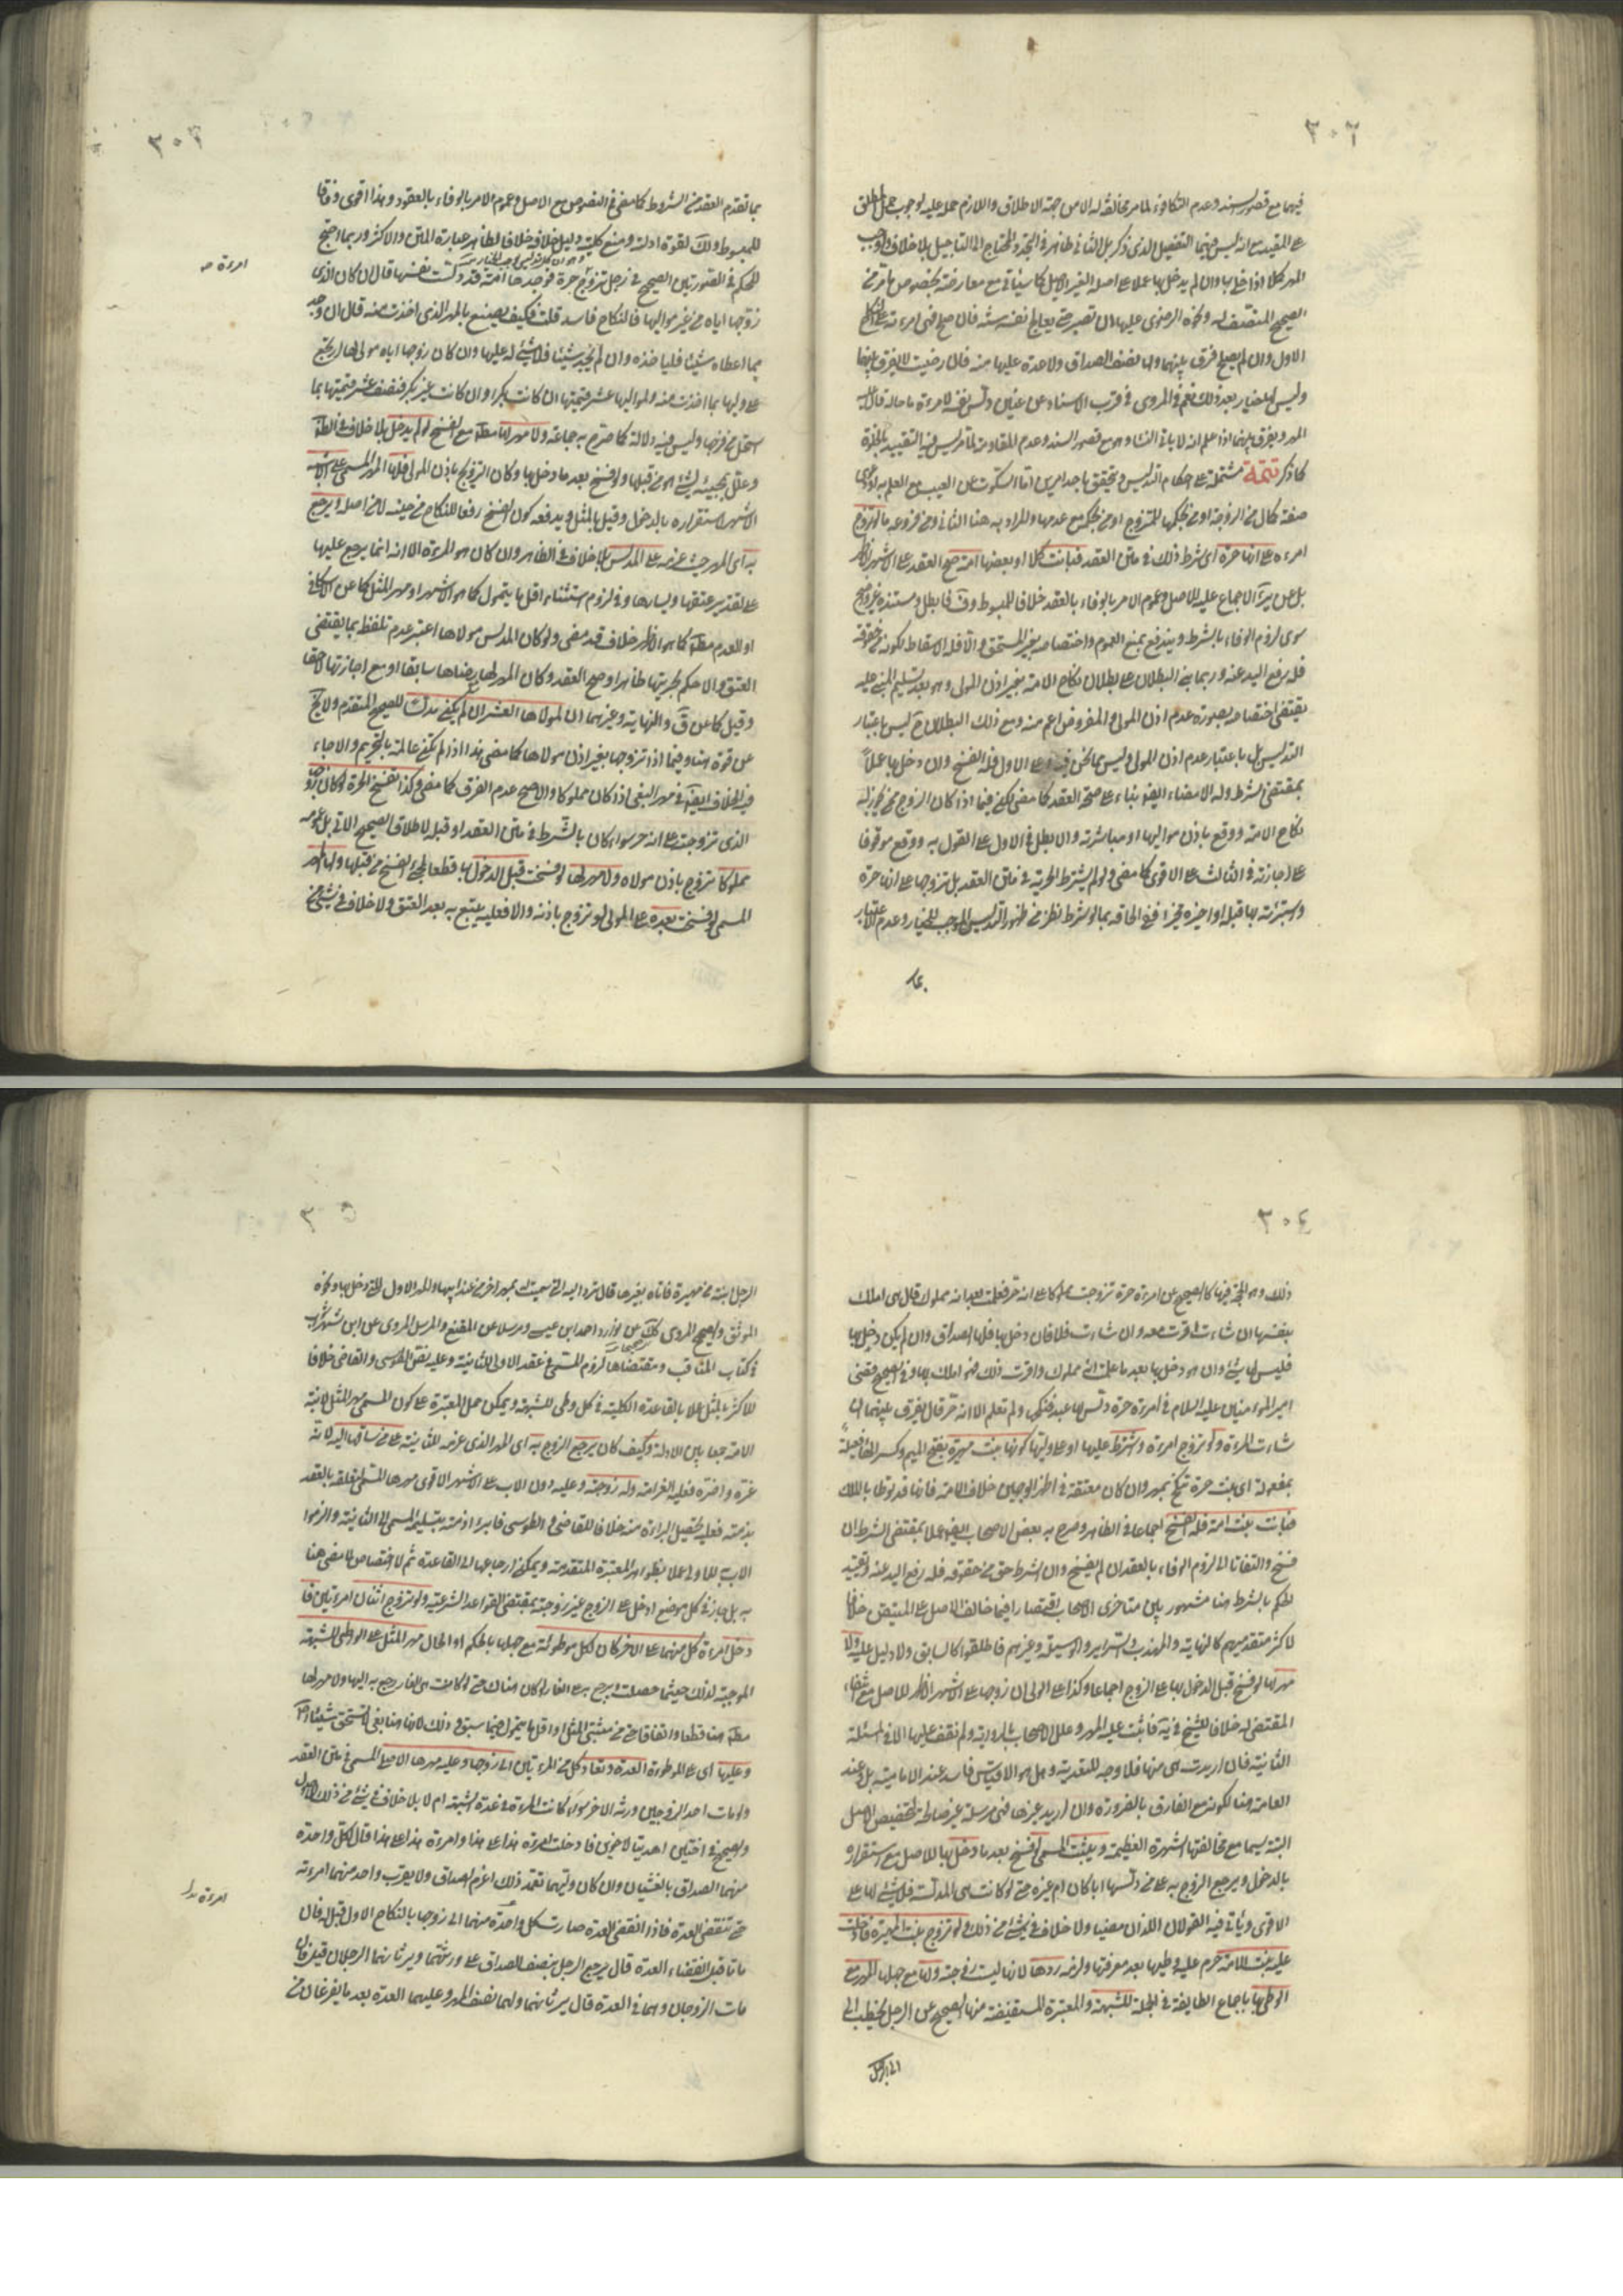 ٣٠٢
فيهما مع قصور السند وعدم التكافؤ لما مر مخالفة له الا من جهة الاطلاق واللازم حمله عليه لوجوب حمل المطلق
على المقيد مع انه ليس فيهما التفصيل الذي ذكر بل الثاني ظاهر في المحتاج الى التأجيل بلا خلاف
المهر كملا اذا خلا بها وان لم يدخل بها عملا على اصله الغير الاصيل كما سيأتي مع معارضته بخصوص ما مر من
الصحيح المتضمن له ونحوه الرضوي عليها ان تصبر حتى يعالج نفسه سنة فان صلح فهي امرءته على النكاح
الاول وان لم يصلح فرق بينهما ولها نصف الصداق ولا عدة عليها منه فان رضيت لا يفرق بينهما
وليس لها خيار بعد ذلك نعم في المروي في قرب الاسناد عن عنين دلس نفسه لامرءة ما حاله قال عليه
المهر ويفرق بينهما اذا علم انه لا يأتي النساء وهو مع قصور السند وعدم المقاومة لما مر ليس فيه التقييد بالخلوة
كما ذكر تتمة مشتملة على احكام التدليس ويتحقق باحد امرين اما السكوت عن العيب مع العلم به او دعوى
صفة كمال من الزوجة او من بحكمها للمتزوج او من بحكمه مع عدمها والمراد به هنا الثاني ومن فروعه ما لو تزوج
امرءة على انها حرة اي شرط ذلك في متن العقد فبانت كلا او بعضها امة صح العقد على الاشهر الاظهر
بل عن الاجماع عليه للاصل وعموم الامر بالوفاء بالعقد خلافا للمبسوط وف فابطل ومستنده غير واضح
سوى لزوم الوفاء بالشرط ويندفع بمنع العموم واختصاصه بغير المستحق والا فله الاسقاط لكونه من حقوقه
فله رفع اليد عنه وربما بني البطلان على بطلان نكاح الامة بغير اذن المولى وهو بعد تسليم المبني عليه
يقتضي اختصاصه بصورة عدم اذن المولى والمفروض اعم منه ومع ذلك البطلان ح ليس باعتبار
التدليس بل باعتبار عدم اذن المولى وليس مما نحن فيه وعلى الاول فله الفسخ وان دخل بها عملا
بمقتضى الشرط وله الامضاء ايضا بناء على صحة العقد كما مضى لكن فيما اذا كان الزوج ممن يجوز له
نكاح الامة ووقع باذن مواليها او مباشرته والا بطل في الاول على القول به ووقع موقوفا
على اجازته في الثالث على الاقوى كما مضى ولو لم يشترط الحرية في متن العقد بل تزوجها على انها حرة
واخبرته بها قبله او اخبره مخبر ففي الحاقه بما لو شرط نظر من ظهور التدليس الموجب للخيار وعدم الاعتبار
بما
٣٠٣
بما تقدم العقد من الشروط كما مضى في النصوص مع الاصل وعموم الامر بالوفاء بالعقود وهذا اقوى وفاقا
للمبسوط ولك لقوة ادلته ومنع كلية دليل خلافه خلافا لظاهر عبارة المتن والاكثر وربما احتج
للحكم في الصورتين الصحيح في رجل تزوج حرة فوجدها امة قد دلست نفسها قال ان كان الذي
امرءة ص
زوجها اياه من غير مواليها فالنكاح فاسد قلت فكيف يصنع بالمهر الذي اخذت منه قال ان وجد
مما اعطاه شيئا فلياخذه وان لم يجد شيئا فلا شيء له عليها وان كان زوجها اياه مولى لها ارتجع
على وليها بما اخذت منه ولمواليها عشر قيمتها ان كانت بكرا وان كانت غير بكر فنصف عشر قيمتها بما
استحل من فرجها وليس فيه دلالة كما صرح به جماعة ولا مهر لها مطلقا مع الفسخ لو لم يدخل بلا خلاف في الظاهر
وعلل بمجيئه من قبلها ولو فسخ بعد ما دخل بها وكان التزويج باذن المولى فلها المهر المسمى على الاشبه
الاشهر لاستقراره بالدخول وقيل المثل ويدفعه كون الفسخ رفعا للنكاح من حينه لا من اصله ويرجع
به اي المهر حيث غرمه على المدلس بلا خلاف في الظاهر وان كان هو المرءة الا انه انما يرجع عليها
على تقدير عتقها ويسارها وفي لزوم استثناء اقل ما يتمول كما هو الاشهر او مهر المثل كما عن الاسكافي
او العدم مطلقا كما هو الاظهر خلاف قد مضى ولو كان المدلس مولاها اعتبر عدم تلفظه بما يقتضي
العتق والا حكم بحريتها ظاهرا وصح العقد وكان المهر لها برضاها سابقا او مع اجازتها لاحقا
وقيل كما عن ق والنهاية وغيرهما ان لمولاها العشر ان لم يكن مدلسا للصحيح المتقدم ولا يخ
عن قوة هنا وفيما اذا تزوجها بغير اذن مولاها كما مضى هذا اذا لم تكن عالمة بالتحريم والا جاء
فيه الخلاف ايضا في مهر البغي اذا كان مملوكا والاصح عدم الفرق كما مضى وكذا تفسخ الحرة لو كان زوجها
الذي تزوجته على انه حر سواء كان بالشرط في متن العقد او قبله لاطلاق الصحيح الآتي بل عمومه
مملوكا تزوج باذن مولاه ولا مهر لها لو فسخت قبل الدخول بها قطعا لمجيء الفسخ من قبلها ولها المهر
المسمى لو فسخت بعده على المولى لو تزوج باذنه والا فعليه يتبع به بعد العتق ولا خلاف في شيء من
٣٠٤
ذلك وهو الحجة فيها كالصحيح عن امرءة حرة تزوجت مملوكا على انه حر فعلمت بعد انه مملوك قال هي املك
بنفسها ان شاءت اقرت معه وان شاءت فلا فان دخل بها فلها الصداق وان لم يكن دخل بها
فليس لها شيء وان هو دخل بها بعد ما علمت انه مملوك واقرت ذلك فهو املك بها وفي الصحيح قضى
امير المؤمنين عليه السلام في امرءة حرة دلس لها عبد فنكحها ولم تعلم الا انه حر قال يفرق بينهما ان
شاءت المرءة ولو تزوج امرءة وشرط عليها او على وليها كونها بنت مهيرة بفتح الميم وكسر الهاء فعيلة
بمعنى مفعولة اي بنت حرة تنكح بمهر وان كان معتقة في اظهر الوجهين خلاف الامة فانها قد توطا بالملك
فبانت بنت امة فله الفسخ اجماعا في الظاهر وصرح به بعض الاصحاب ايضا عملا بمقتضى الشرط ان
فسخ والتفاتا الى لزوم الوفاء بالعقد ان لم يفسخ وان الشرط حق من حقوقه فله رفع اليد عنه وتقييد
الحكم بالشرط هنا مشهور بين متأخري الاصحاب اقتصارا فيما خالف الاصل على المتيقن خلافا
لاكثر متقدميهم كالنهاية والمهذب والسرائر والوسيلة وغيرهم فاطلقوا كالسابق ولا دليل عليه ولا
مهر لها لو فسخ قبل الدخول بها على الزوج اجماعا وكذا على الولي ان زوجها على الاشهر الاظهر للاصل مع انتفاء
المقتضي له خلافا للشيخ في ية فاثبت عليه المهر وعلل الاصحاب بالرواية ولم نقف عليها الا في المسئلة
الثانية فان اريدت هي منها فلا وجه للتعدية وهل هو الا قياس فاسد عند الامامية بل وعند
العامة هنا لكونه مع الفارق بالضرورة وان اريد غيرها فهي مرسلة غير صالحة لتخصيص الاصل
البتة سيما مع مخالفتها الشهرة العظيمة ويثبت المسمى لو فسخ بعد ما دخل بها للاصل مع استقراره
بالدخول ويرجع الزوج به على من دلسها ابا كان ام غيره حتى لو كانت هي المدلسة فلا شيء لها على
الاقوى ويأتي فيه القولان اللذان مضيا ولا خلاف في شيء من ذلك ولو تزوج بنت المهيرة فادخلت
عليه بنت الامة حرم عليه وطيها بعد معرفتها ولزمه ردها لانها ليست زوجته ولها مع جهلها المهر مع
الوطي بها باجماع الطايفة في الجملة للشبهة والمعتبرة المستفيضة منها الصحيح عن الرجل يخطب الى
الى الرجل
٣٠٥
الرجل ابنته من مهيرة فاتاه بغيرها قال ترد اليه التي سميت له بمهر اخر من عند ابيها والمهر الاول للتي دخل بها ونحوه
الموثق والصحيح المروي عن نوادر احمد ابن عيسى ومرسلا عن المقنع والمرسل المروي عن ابن شهراشوب
في كتاب المناقب ومقتضاها لزوم المسمى في عقد الاولى للثانية وعليه نص الطوسي والقاضي خلافا
للاكثر فالمثل عملا بالقاعدة الكلية في كل وطي للشبهة ويمكن حمل المعتبرة على كون المسمى مهر المثل لابنة
الامة جمعا بين الادلة وكيف كان يرجع الزوج به اي المهر الذي غرمه للثانية على من ساقها اليه لانه
غره واضره فعليه الغرامة وله زوجته وعليه دون الاب على الاشهر الاقوى مهرها المسمى لتعلقه بالعقد
بذمته فعليه تحصيل البراءة منه خلافا للقاضي والطوسي فابرءا ذمته بتسليم المسمى الى الثانية والزموا
الاب للاولى عملا بظواهر المعتبرة المتقدمة ويمكن ارجاعها الى القاعدة ثم لا اختصاص لما مضى هنا
به بل جار في كل موضع ادخل على الزوج غير زوجته بمقتضى القواعد الشرعية ولو تزوج اثنان امرءتين فا
دخل امراة كل منهما على الاخر كان لكل موطوئة مع جهلها بالحكم او الحال مهر المثل على الواطي للشبهة
الموجبة لذلك حيثما حصلت ويرجع به على الغار لو كان هناك حتى لو كانت هي الغار رجع به اليها ولا مهر لها
مطلقا هنا قطعا واتفاقا حتى من مثبتي المثل او اقل ما يتمول فيما سبق وذلك لانها هنا بغي لا تستحق شيئا
وعليها اي على الموطوءة العدة وتعاد كل من المرءتين الى زوجها وعليه مهرها الاصلي المسمى في متن العقد
ولو مات احد الزوجين ورثه الاخر سواء كانت المرءة في عدة الشبهة ام لا بلا خلاف في شيء من ذلك للاصول
والصحيح في اختين اهديتا لاخوين فادخلت امرءة هذا على هذا وامرءة هذا على هذا قال لكل واحدة
منهما الصداق بالغشيان وان كان وليهما تعمد ذلك اغرم الصداق ولا يقرب واحد منهما امرءته
امرءة هذا
حتى تنقضي العدة فاذا انقضت العدة صارت كل واحدة منهما الى زوجها بالنكاح الاول قيل له فان
ماتتا قبل انقضاء العدة قال يرجع الرجل بنصف الصداق على ورثتهما ويرثانهما الرجلان قيل فان
مات الزوجان وهما في العدة قال يرثانهما ولهما نصف المهر وعليهما العدة بعد ما يفرغان من